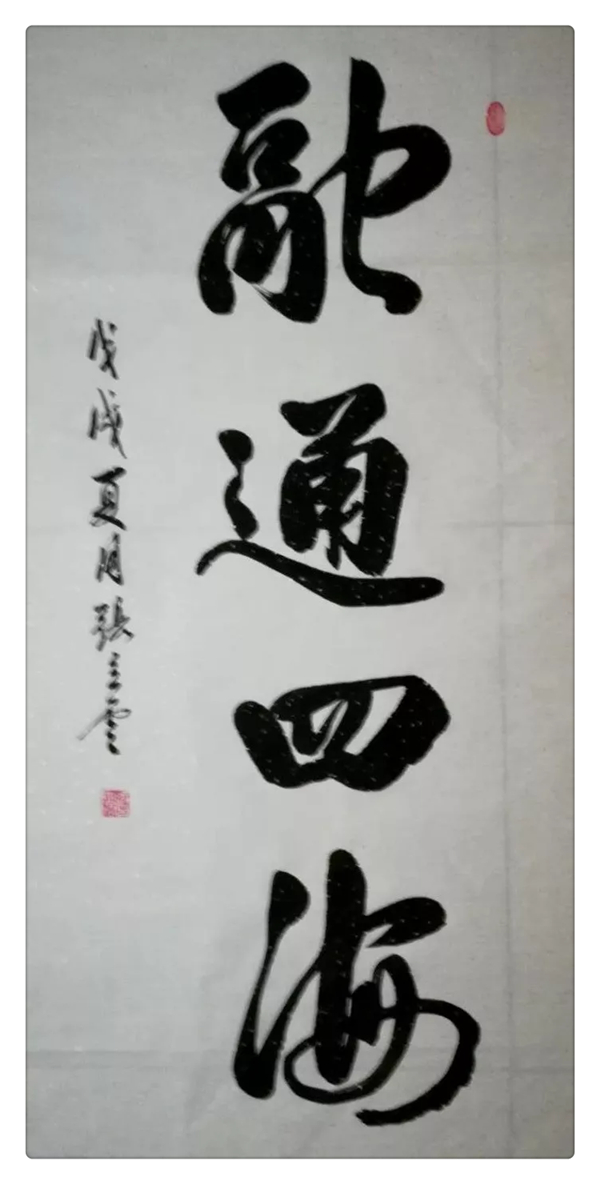 融通四海
戊戌夏月張立雲